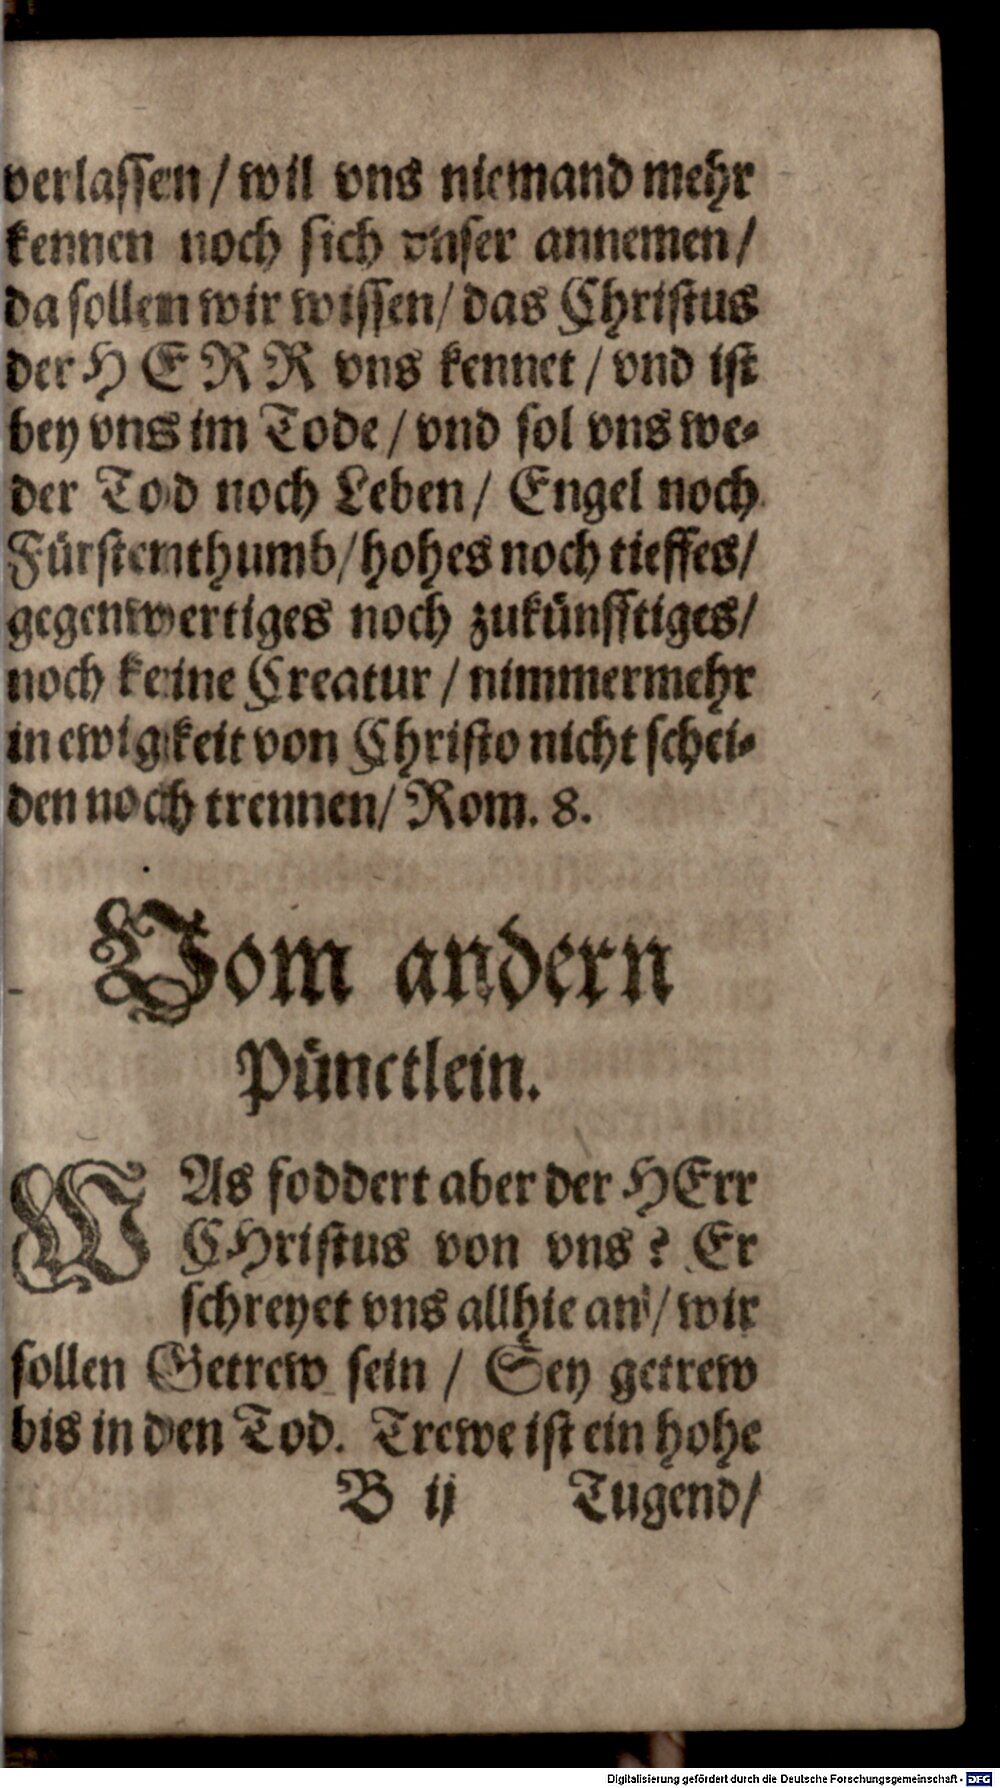 verlassen / wil vns niemand mehr
kennen noch sich vnser annemen /
da sollen wir wissen / das Christus
der HERR vns kennet / vnd ist
bey vns im Tode / vnd sol vns we-
der Tod noch Leben / Engel noch
Fürstenthumb / hohes noch tieffes /
gegenwertiges noch zukünfftiges /
noch keine Creatur / nimmermehr
in ewigkeit von Christo nicht schei-
den noch trennen / Rom. 8.
Vom andern
Pünctlein.
WAs foddert aber der HErr
CHristus von vns? Er
schreyet vns allhie an / wir
sollen Getrew sein / Sey getrew
bis in den Tod. Trewe ist ein hohe
B ij Tugend /
Digitalisierung gefördert durch die Deutsche Forschungsgemeinschaft - DFG